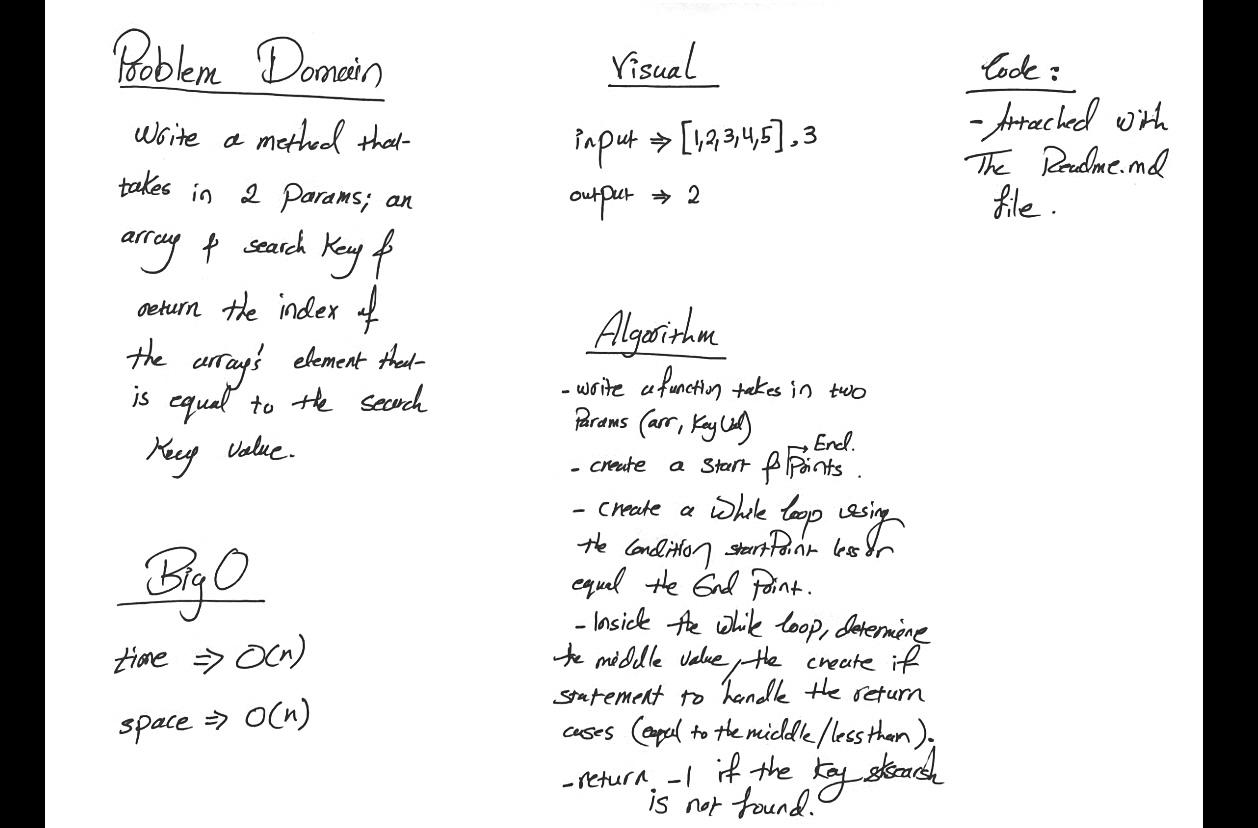 Problem Domain
Write a method that
takes in 2 Params; an
array & search Key &
return the index of
the array's element that
is equal to the search
Key value.
Big O
time ⇒ O(n)
space ⇒ O(n)
Visual
input ⇒ [1,2,3,4,5] , 3
output ⇒ 2
Algorithm
- write a function takes in two
Params (arr, Key Val)
End.
- create a start & Points .
- create a While loop using
the condition startPoint less or
equal the End Point.
- Inside the while loop, determine
the middle value, the create if
statement to handle the return
cases (equal to the middle/less than).
- return -1 if the key search
is not found.
Code :
- Attached with
The Readme.md
file .